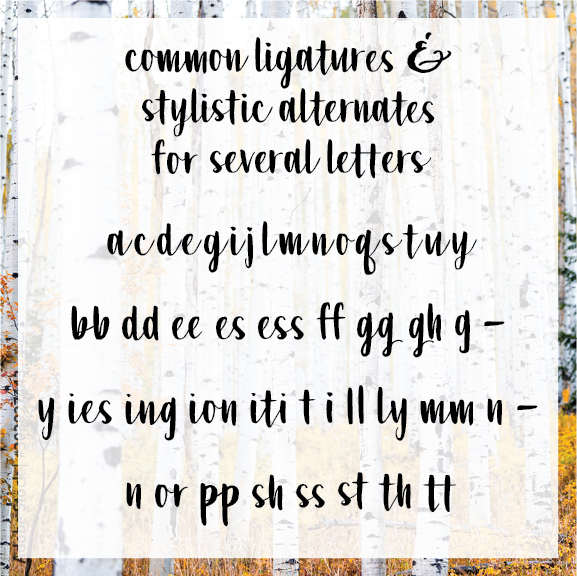 common ligatures &
stylistic alternates
for several letters
a c d e g i j l m n o q s t u y
bb dd ee es ess ff gg gh g -
y ies ing ion iti t i ll ly mm n -
n or pp sh ss st th tt